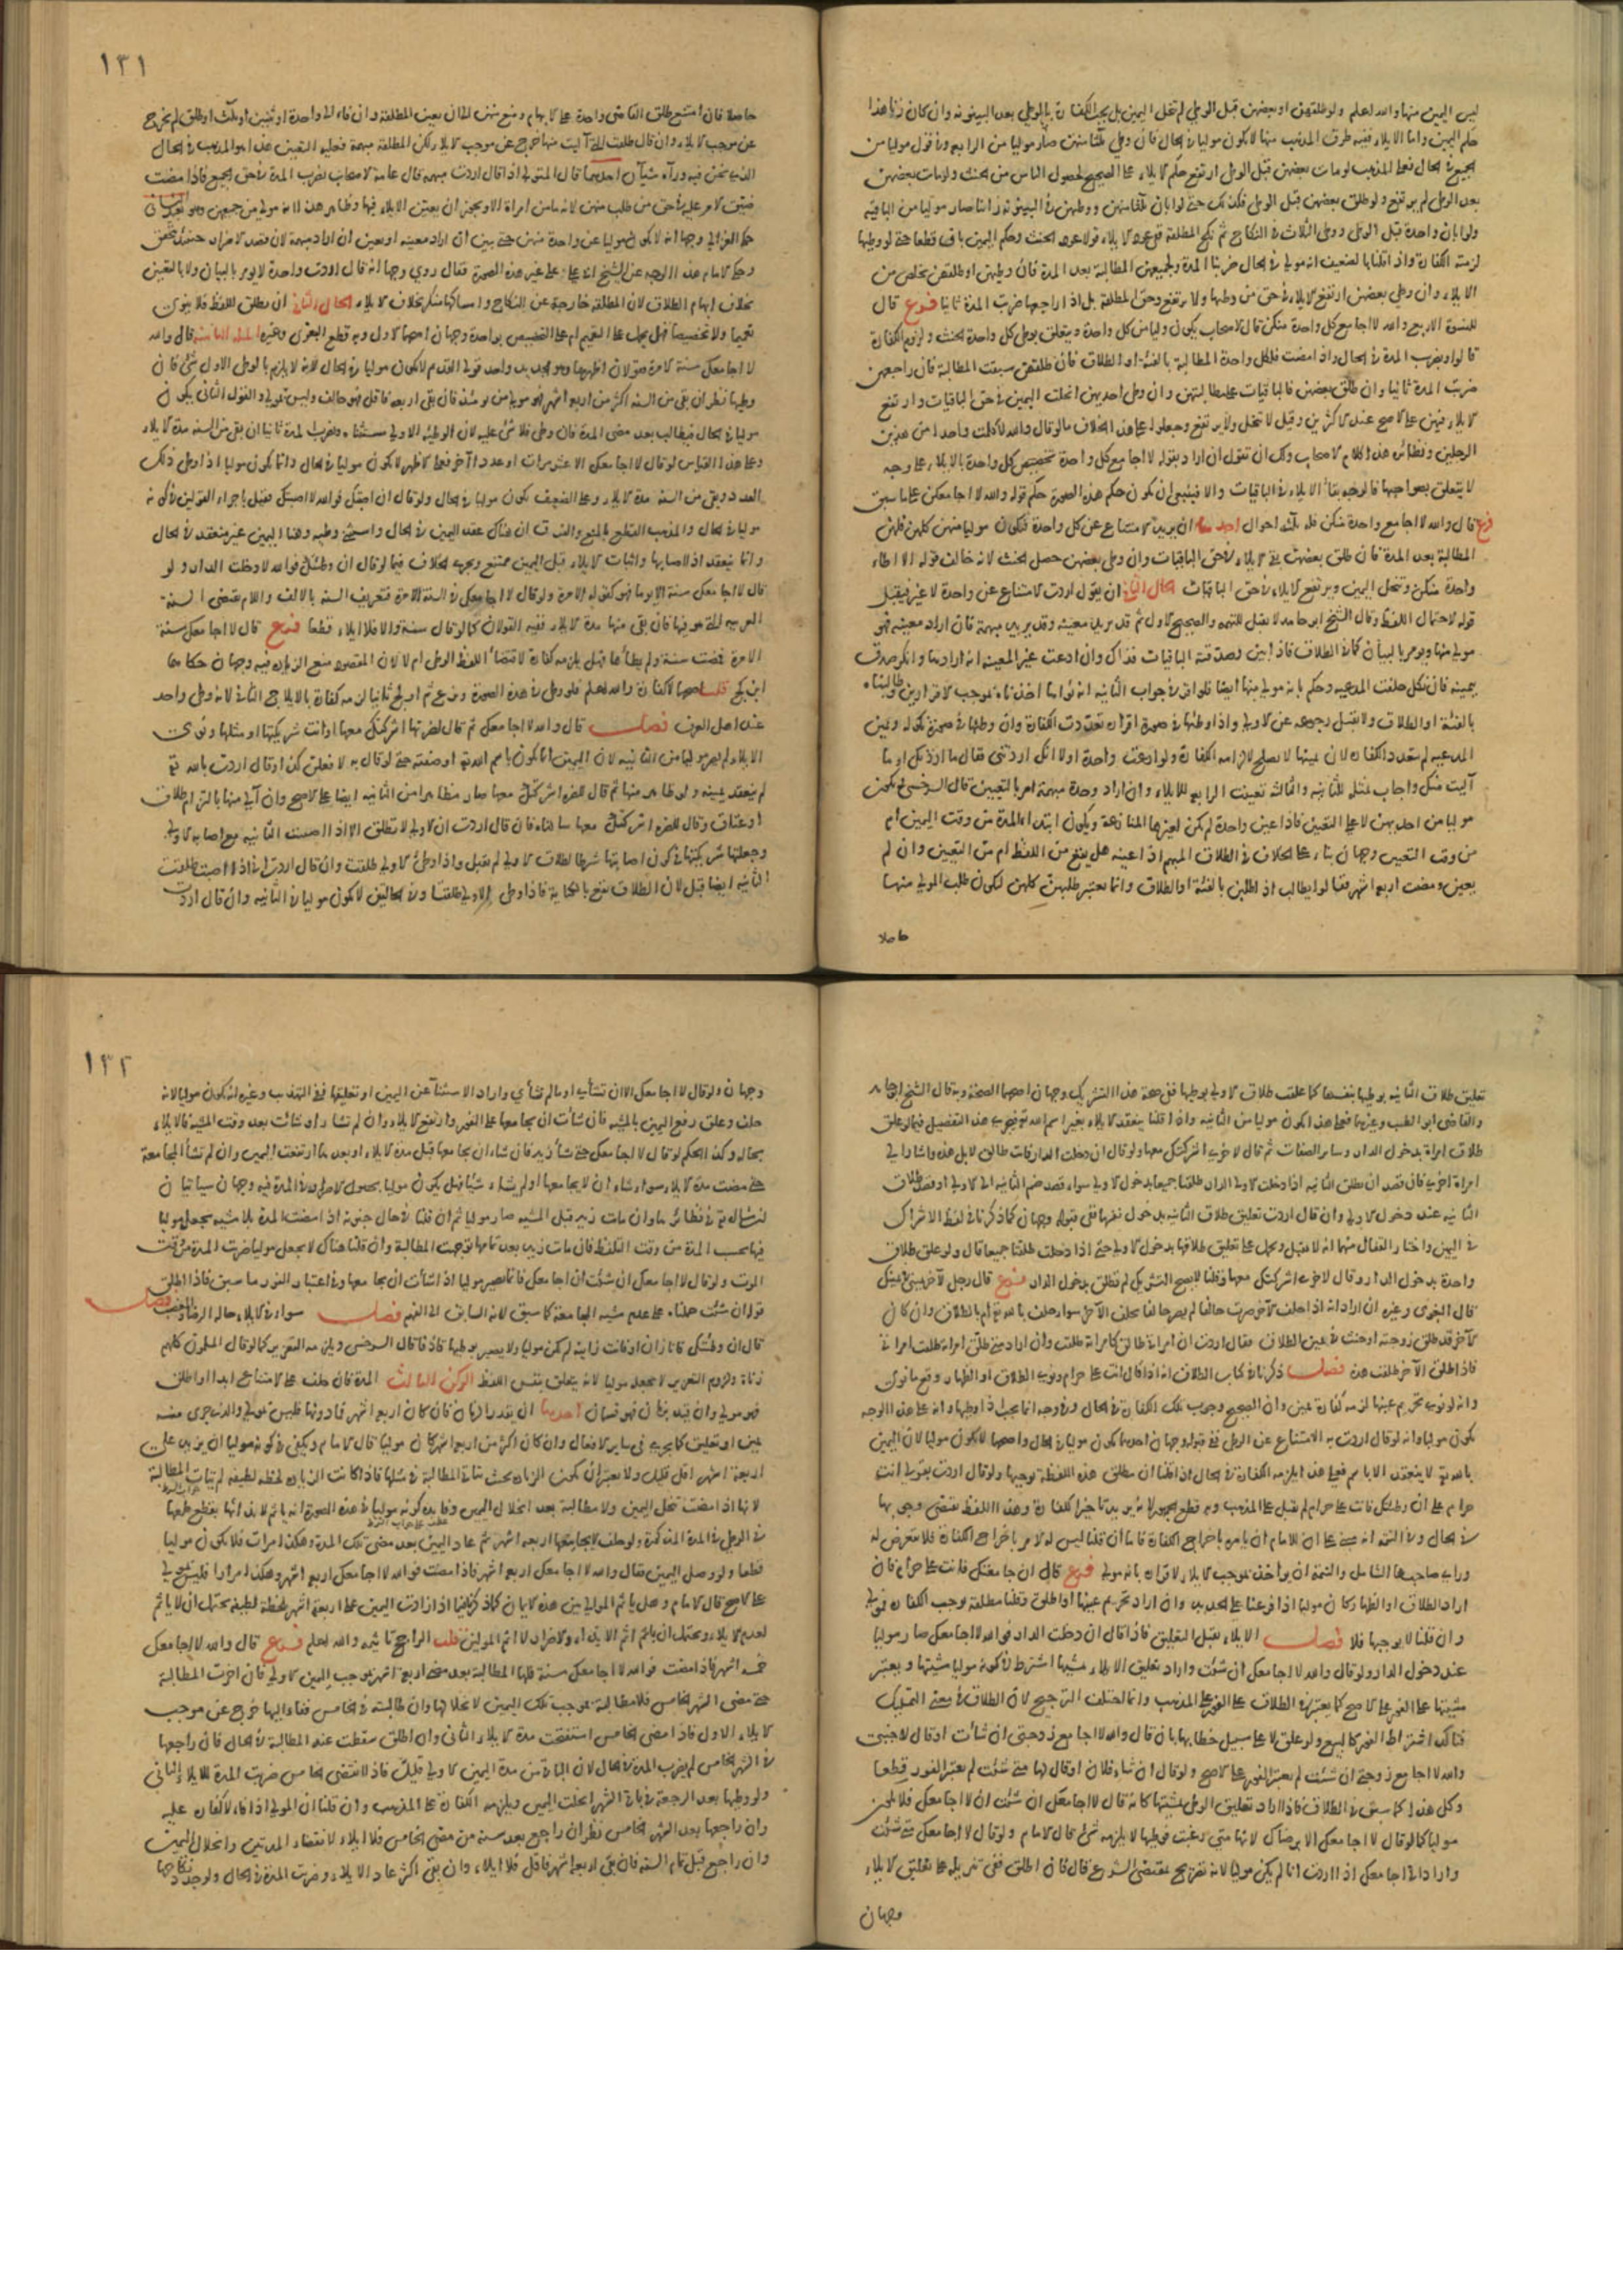 ليس اليمين منها والله اعلم ولو طلقهن او بعضهن قبل الوطي لم تنحل اليمين بل يجب الكفارة بالوطي بعد البينونة وان كان زنا هذا
حكم اليمين واما الايلاء ففيه طرق المذهب منها لا يكون موليا في الحال فان وطي ثلثا منهن صار موليا من الرابعة وفي قول موليا من
الجميع في الحال فعلى المذهب لو مات بعضهن قبل الوطي ارتفع حكم الايلاء على الصحيح لحصول الياس من الحنث ولو مات بعضهن
بعد الوطي لم يرتفع ولو طلق بعضهن قبل الوطي فكذلك حتى لو ابان ثلثا منهن ووطيهن في البينونة زنا صار موليا من الباقية
ولو ابان واحدة قبل الوطي ووطي الثلاث في النكاح ثم نكح المطلقة ففي عود الايلاء قولا عود الحنث وحكم اليمين باق قطعا حتى لو وطيها
لزمته الكفارة واذا قلنا بالضعيف انه مولي في الحال ضربنا المدة ولجميعهن المطالبة بعد المدة فان وطيهن او طلقهن تخلص من
الايلاء وان وطي بعضهن ارتفع الايلاء في حق من وطيها ولا يرتفع وحق المطلقة بل اذا راجعها ضربت المدة ثانيا فرع قال
للنسوة الاربع والله لا اجامع كل واحدة منكن قال الاصحاب يكون موليا من كل واحدة ويتعلق بوطي كل واحدة الحنث ولزوم الكفارة
قالوا ويضرب المدة في الحال واذا مضت فلكل واحدة المطالبة بالفئة او الطلاق فان طلقهن سقطت المطالبة فان راجعهن
ضربت المدة ثانيا وان طلق بعضهن فالباقيات على مطالبتهن وان وطي احديهن انحلت اليمين في حق الباقيات وارتفع
الايلاء فيهن على الاصح عند الاكثرين وقيل لا تنحل ولا يرتفع وجعلوا على هذا الخلاف ما لو قال والله لا كلمت واحدا من هذين
الرجلين ونظائره هذا كلام الاصحاب ولك ان تقول ان اراد بقوله لا اجامع كل واحدة تخصيص كل واحدة بالايلاء على وجه
لا يتعلق بصواحبها فالوجه بقاء الايلاء في الباقيات والا فينبغي ان يكون حكم هذه الصورة حكم قوله والله لا اجامعكن على ما سبق
فرع قال والله لا اجامع واحدة منكن فله ثلثة احوال احدها ان يريد الامتناع عن كل واحدة فيكون موليا منهن كلهن فلهن
المطالبة بعد المدة فان طلق بعضهن بقي الايلاء في حق الباقيات وان وطي بعضهن حصل الحنث لانه خالف قوله لا اطاء
واحدة منكن وتنحل اليمين ويرتفع الايلاء في حق الباقيات الحال الثاني ان يقول اردت الامتناع عن واحدة لا غير فيقبل
قوله لاحتمال اللفظ وقال الشيخ ابو حامد لا يقبل للتهمة والصحيح الاول ثم قد يريد معينة وقد يريد مبهمة فان اراد معينة فهو
مولي منها ويومر بالبيان كما في الطلاق فاذا بين وصدقته الباقيات فذاك وان ادعت غير المعينة انه ارادها وانكر صدق
بيمينه فان نكل حلفت المدعية وحكم بانه مولي منها ايضا فلو اقر في جواب الثانية انه نواها اخذناه بموجب الاقرارين وطالبناه
بالفئة او الطلاق ولا يقبل رجوعه عن الاولي واذا وطئهما في صورة اقراره تعددت الكفارة وان وطئهما في صورة نكوله ويمين
المدعية لم تتعدد الكفارة لان يمينها لا يصلح لالزامه الكفارة ولو ادعت واحدة اولا انك اردتني فقال ما اردتك او ما
آليت منك واجاب بمثله للثانية والثالثة تعينت الرابعة للايلاء وان اراد واحدة مبهمة امر بالتعيين قال السرخسي ويكون
موليا من احديهن لا على التعيين فاذا عين واحدة لم يكن لغيرها المنازعة ويكون ابتداء المدة من وقت اليمين ام
من وقت التعيين وجهان بناء على الخلاف في الطلاق المبهم اذا عينه هل يقع من اللفظ ام من التعيين وان لم
يعين ومضت اربعة اشهر فقالوا يطالب اذا طلبن بالفئة او الطلاق وانما يعتبر طلبهن كلهن ليكون طلب المولي منها
حاصلا
١٣١
حاصلا فان امتنع طلق القاضي واحدة على الابهام ومنع منهن الى ان يعين المطلقة وان فاء الى واحدة او ثنتين او ثلث او طلق لم يخرج
عن موجب الايلاء وان قال طلقت التي آليت منها خرج عن موجب الايلاء لكن المطلقة مبهمة فعليه التعيين هذا هو المذهب في الحال
الذي نحن فيه ووراءه شيآن احدهما قال المتولي اذا قال اردت مبهمة قال عامة الاصحاب يضرب المدة في حق الجميع فاذا مضت
ضيق الامر عليه في حق من طلب منهن لانه ما من امراة الا ويجوز ان يعين الايلاء فيها وظاهر هذا انه مولي من جميعهن وهو بعيد الثاني
حكى الغزالي وجها انه لا يكون موليا عن واحدة منهن حتى يبين ان اراد معينة او يعين ان اراد مبهمة لان قصد الاضرار حينئذ يتحقق
وحكى الامام هذا الوجه عن الشيخ ابي علي على غير هذه الصورة فقال روي وجها انه قال اردت واحدة لا يومر بالبيان ولا بالتعيين
بخلاف ابهام الطلاق لان المطلقة خارجة عن النكاح وامساكها منكر بخلاف الايلاء الحال الثالث ان يطلق اللفظ فلا ينوي
تعميما ولا تخصيصا فهل يحمل على التعميم ام على التخصيص بواحدة وجهان اصحهما الاول وبه قطع البغوي وغيره المسئلة الثانية قال والله
لا اجامعك سنة الا مرة فقولان اظهرهما وهو الجديد واحد قولي القديم لا يكون موليا في الحال لانه لا يلزم بالوطي الاول شيء فان
وطيها نظر ان بقي من السنة اكثر من اربعة اشهر فهو مولي من يومئذ فان بقي اربعة فاقل فهو حالف وليس بمولي والقول الثاني يكون
موليا في الحال فيطالب بعد مضي المدة فان وطي فلا شيء عليه لان الوطئة الاولي مستثناة ويضرب المدة ثانيا ان بقي من السنة مدة الايلاء
وعلى هذا القياس لو قال لا اجامعك الا عشر مرات او عددا آخر فعلى الاظهر لا يكون موليا في الحال وانما يكون موليا اذا وطي ذلك
العدد وبقي من السنة مدة الايلاء وعلى الضعيف يكون موليا في الحال ولو قال ان اصبتك فوالله لا اصبتك فقيل باجراء القولين في كونه
موليا في الحال والمذهب القطع بالمنع والفرق ان هناك عقد اليمين في الحال واستثنى وطية وهنا اليمين غير منعقدة في الحال
وانما ينعقد اذا اصابها واثبات الايلاء قبل اليمين ممتنع ويجري الخلاف فيما لو قال ان وطئتك فوالله لا دخلت الدار ولو
قال لا اجامعك سنة الا يوما فهو كقوله الا مرة ولو قال لا اجامعك في السنة الا مرة فتعريف السنة بالالف واللام يقتضي السنة
العربية التي هو فيها فان بقي منها مدة الايلاء ففيه القولان كما لو قال سنة والا فلا ايلاء قطعا فرع قال لا اجامعك سنة
الا مرة فمضت سنة ولم يطأها فهل يلزمه كفارة لاقتضاء اللفظ الوطي ام لا لان المقصود منع الزيادة فيه وجهان حكاهما
ابن كج قلت اصحهما لا كفارة والله اعلم فلو وطي في هذه الصورة ونزع ثم اولج ثانيا لزمه كفارة بالايلاج الثاني لانه وطي واحد
عند اهل العرف فصل قال والله لا اجامعك ثم قال لضرتها اشركتك معها او انت شريكتها او مثلها ونوى
الايلاء لم يصر موليا من الثانية لان اليمين انما يكون باسم الله تع او صفته حتى لو قال به لا فعلن كذا وقال اردت بالله تع
لم ينعقد يمينه ولو ظاهر منها ثم قال للضرة اشركتك معها صار مظاهرا من الثانية ايضا على الاصح وان آلى منها بالتزام طلاق
او عتاق وقال للضرة اشركتك معها سالناه فان قال اردت ان الاولي لا تطلق الا اذا اصبت الثانية مع اصابة الاولي
وجعلتها شريكتها في كون اصابتها شرطا لطلاق الاولي لم يقبل واذا وطي الاولي طلقت وان قال اردت اني اذا اصبت طلقت
الثانية ايضا قبل لان الطلاق يقع بالكناية فاذا وطي الاولي طلقتا وفي الحالين لا يكون موليا في الثانية وان قال اردت
تعليق طلاق الثانية بوطيها بنفسها كما علقت طلاق الاولي بوطيها ففي صحة هذا التشريك وجهان اصحهما الصحة وبه قال الشيخ ابو حامد
والقاضي ابو الطيب وغيرهما فعلى هذا يكون موليا من الثانية وان قلنا ينعقد الايلاء بغير اسم الله تع ويجري هذا التفصيل فيما لو علق
طلاق امراة بدخول الدار وسائر الصفات ثم قال لاخرى اشركتك معها ولو قال ان دخلت الدار فانت طالق لا بل هذه واشار الي
امراة اخرى فان قصد ان يطلق الثانية اذا دخلت الاولي الدار طلقتا جميعا بدخول الاولي سواء قصد ضم الثانية الى الاولي او قصد طلاق
الثانية عند دخول الاولي وان قال اردت تعليق طلاق الثانية بدخول نفسها ففي قبوله وجهان كما ذكرنا في لفظ الاشراك
في اليمين واختار القفال منهما انه لا يقبل ويحمل على تعليق طلاقها بدخول الاولي حتى اذا دخلت طلقتا جميعا قال ولو علق طلاق
واحدة بدخول الدار وقال لاخرى اشركتك معها وقلنا لا يصح التشريك لم تطلق بدخول الدار فرع قال رجل لآخر يميني في يمينك
قال البغوي وغيره ان اراد انه اذا حلف الآخر صرت حالفا لم يصر حالفا بحلف الآخر سواء حلف بالله تع ام بالطلاق وان كان
الآخر قد طلق زوجته او حنث في يمين الطلاق فقال اردت ان امراتي طالق كامراته طلقت وان اراد متى طلق امراته طلقت امراتي
فاذا طلق الآخر طلقت هذه فصل ذكرنا في كتاب الطلاق انه اذا قال انت علي حرام ونوى الطلاق او الظهار وقع ما نوى
وانه لو نوى تحريم عينها لزمه كفارة يمين وان الصحيح وجوب تلك الكفارة في الحال وفي وجه انما يجب اذا وطيها وانه على هذا الوجه
يكون موليا وانه لو قال اردت به الامتناع عن الوطي ففي قبوله وجهان احدهما يكون موليا في الحال واصحهما لا يكون موليا لان اليمين
بالله تع لا ينعقد الا باسم فعلى هذا يلزمه الكفارة في الحال اذا قلنا ان مطلق هذه اللفظة توجبها ولو قال اردت بقولي انت
حرام علي ان وطئتك فانت علي حرام لم يقبل على المذهب وبه قطع الجمهور لانه يريد تاخير الكفارة وهذا اللفظ يقتضي وجوبها
في الحال وفي التتمة انه مبني على ان للامام ان يامره باخراج الكفارة فاما ان قلنا ليس له الامر باخراج الكفارة فلا يتعرض له
وراي صاحبها الشامل والتتمة ان يواخذ بموجب الايلاء لاقراره بانه مولي فرع قال ان جامعتك فانت علي حرام فان
اراد الطلاق او الظهار كان موليا اذا فرعنا على الجديد وان اراد تحريم عينها او اطلق وقلنا مطلقه يوجب الكفارة فمولي
وان قلنا لا يوجبها فلا فصل الايلاء يقبل التعليق فاذا قال ان دخلت الدار فوالله لا اجامعك صار موليا
عند دخول الدار ولو قال والله لا اجامعك ان شئت واراد تعليق الايلاء بمشيتها اشترط في كونه موليا مشيتها ويعتبر
مشيتها على الفور على الاصح كما يعتبر في الطلاق على الفور على المذهب وانما اختلف الترجيح لان الطلاق في معنى التمليك
فتاكد اشتراط الفور كالبيع ولو علق لا على سبيل خطابها بان قال والله لا اجامع زوجتي ان شاءت او قال لاجنبي
والله لا اجامع زوجتي ان شئت لم يعتبر الفور على الاصح ولو قال ان شاء فلان او قال لها متى شئت لم يعتبر الفور قطعا
وكل هذا كما سبق في الطلاق فاذا اراد تعليق الوطي بمشيتها كانه قال لا اجامعك ان شئت ان لا اجامعك فلا يكون
موليا كما لو قال لا اجامعك الا برضاك لانها متى رغبت فوطيها لا يلزمه شيء قال الامام ولو قال لا اجامعك متى شئت
واراد اني اجامعك اذا اردت انا لم يكن موليا لانه تصريح بمقتضى الشرع قال فان اطلق ففي تنزيله على تعليق الايلاء
وجهان
١٣٢
وجهان ولو قال لا اجامعك الا ان تشائي او ما لم تشائي واراد الاستثناء عن اليمين او تعليقها ففي التهذيب وغيره انه يكون موليا لانه
حلف وعلق رفع اليمين بالمشية فان شاءت ان يجامعها على الفور ارتفع الايلاء وان لم تشاء او شاءت بعد وقت المشية فالايلاء
بحاله وكذا الحكم لو قال لا اجامعك حتى يشاء زيد فان شاء ان يجامعها قبل مدة الايلاء او بعدها ارتفعت اليمين وان لم يشأ المجامعة
حتى مضت مدة الايلاء سواء شاء ان لا يجامعها او لم يشاء شيئا فهل يكون موليا بحصول الاضرار في المدة فيه وجهان سياتيان
ان شاء الله تع في نظائره وان مات زيد قبل المشية صار موليا ثم ان قلنا في حال حيوته اذا مضت المدة بلا مشية يجعل موليا
فيها يحسب المدة من وقت التلفظ فان مات زيد بعد تمامها توجهت المطالبة وان قلنا هناك لا يجعل موليا ضربت المدة من وقت
الموت ولو قال لا اجامعك ان شئت ان اجامعك فانما يصير موليا اذا شاءت ان يجامعها وفي اعتبار الفور ما سبق فاذا اطلق
قوله ان شئت حملناه على عدم مشية المجامعة كما سبق لانه السابق الى الفهم فصل سواء في الايلاء حالة الرضا والغضب فصل
قال ان وطئتك فانا زان او فانت زانية لم يكن موليا ولا يصير بوطيها قاذفا قال السرخسي ويلزمه التعزير كما لو قال المسلمون كلهم
زناة ولزوم التعزير لا يجعله موليا لانه يتعلق بنفس اللفظ الركن الثالث المدة فان حلف على الامتناع ابدا او اطلق
فهو مولي وان قيد بزمان فهو قسمان احدهما ان يقدر الزمان فان كان اربعة اشهر فما دونها فليس بمولي والذي جرى منه
يمين او تعليق كما يجري في سائر الافعال وان كان اكثر من اربعة اشهر كان موليا قال الامام ويكفي في كونه موليا ان يزيد على
اربعة اشهر اقل قليل ولا يعتبر ان يكون الزيادة بحيث يتاتى المطالبة في مثلها فاذا كانت الزيادة لحظة لطيفة لم يتات المطالبة
لانها اذا مضت تنحل اليمين ولا مطالبة بعد انحلال اليمين وفائدة كونه موليا في هذه الصورة انه ياثم لايذائها بقطع طمعها
في الوطي في المدة المذكورة ولو حلف لا يجامعها اربعة اشهر ثم عاد اليمين بعد مضي تلك المدة وهكذا مرات فلا يكون موليا
قطعا ولو وصل اليمين فقال والله لا اجامعك اربعة اشهر فاذا مضت فوالله لا اجامعك اربعة اشهر وهكذا مرارا فليس بمولي
على الاصح قال الامام وهل ياثم الموالي بين هذه الايمان كما ذكرنا فيما اذا زادت اليمين على اربعة اشهر بلحظة لطيفة يحتمل ان لا ياثم
لعدم الايلاء ويحتمل ان ياثم اثم الايذاء والاضرار لا اثم المولين قلت الراجح تاثيمه والله اعلم فرع قال والله لا اجامعك
خمسة اشهر فاذا مضت فوالله لا اجامعك سنة فلها المطالبة بعد مضي اربعة اشهر بموجب اليمين الاولي فان اخرت المطالبة
حتى مضى الشهر الخامس فلا مطالبة بموجب تلك اليمين لانحلالها وان طالبته في الخامس ففاء اليها خرج عن موجب
الايلاء الاول فاذا مضى الخامس استفتحت مدة الايلاء الثاني وان طلق سقطت عنه المطالبة في الحال فان راجعها
في الشهر الخامس لم يضرب المدة في الحال لان الباقي من مدة اليمين الاولي قليل فاذا انقضى الخامس ضربت المدة للايلاء الثاني
ولو وطيها بعد الرجعة في باقي الشهر انحلت اليمين ويلزمه الكفارة على المذهب وان قلنا ان المولي اذا فاء لا كفارة عليه
وان راجعها بعد الشهر الخامس نظر ان راجع بعد سنة من مضي الخامس فلا ايلاء لانقضاء المدتين وانحلال اليمين
وان راجع قبل تمام السنة فان بقي اربعة اشهر فاقل فلا ايلاء وان بقي اكثر عاد الايلاء وضربت المدة في الحال ولو جدد نكاحها